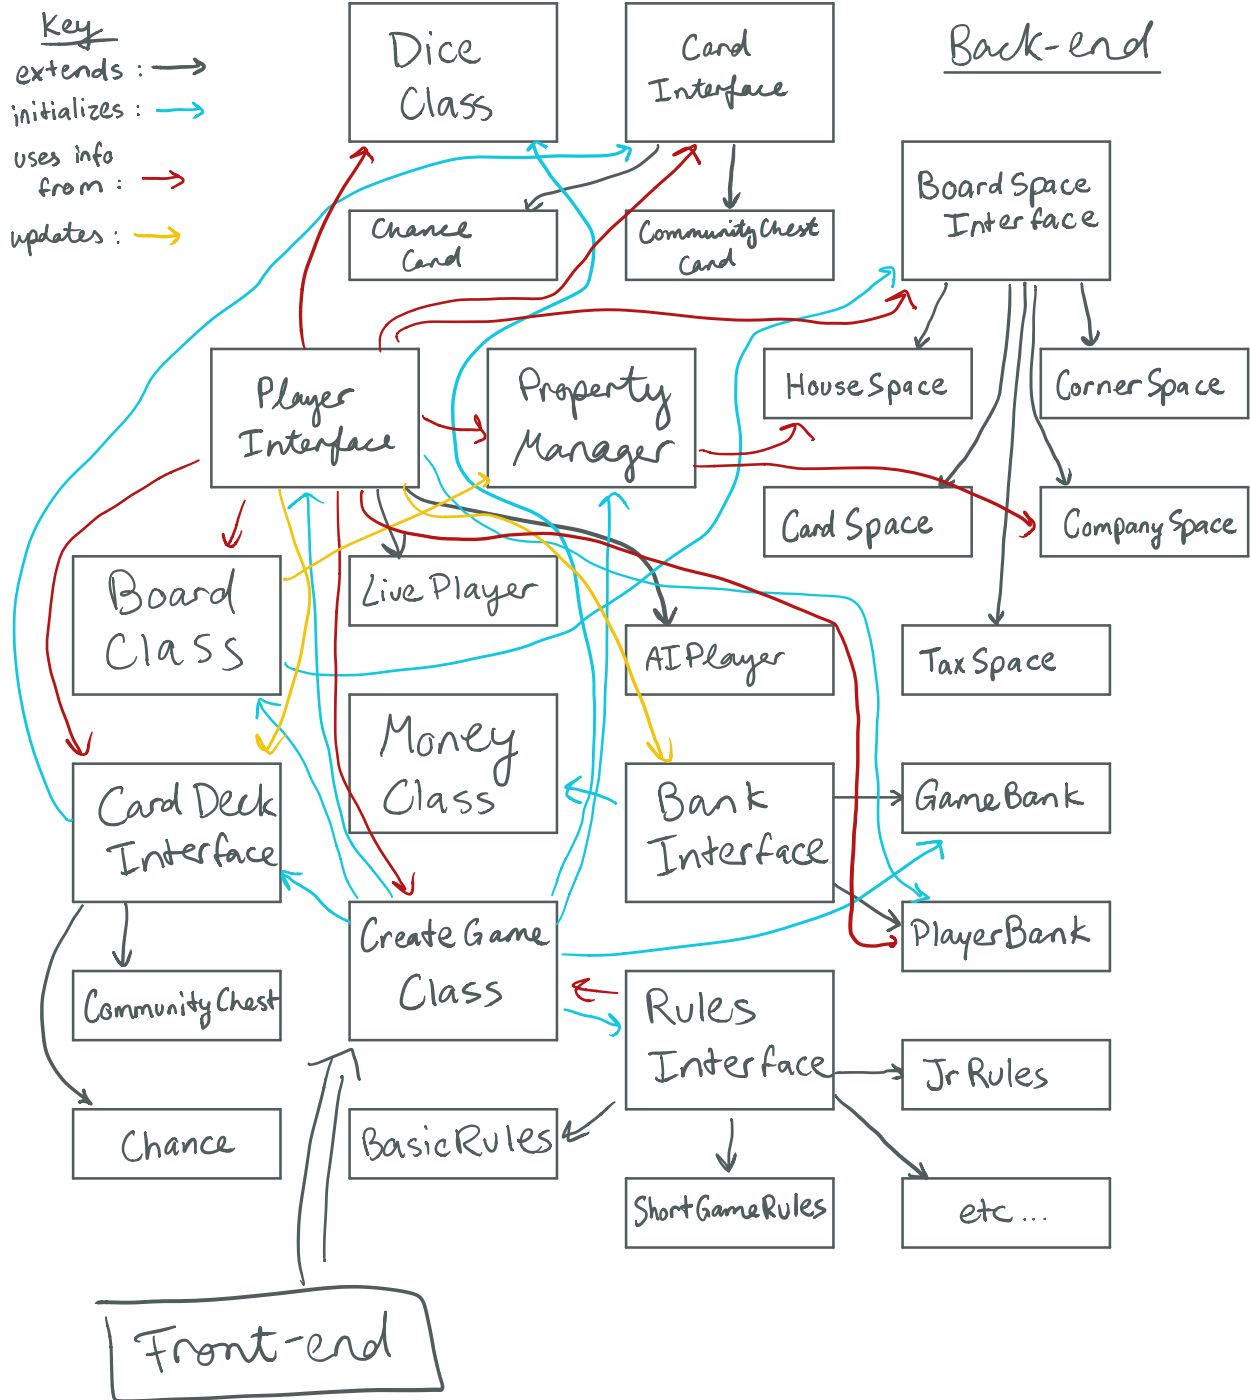 Key
extends :
initializes :
uses info
from :
updates :
Back-end
Dice
Class
Card
Interface
Chance
Card
CommunityChest
Card
BoardSpace
Interface
Player
Interface
Property
Manager
HouseSpace
CornerSpace
Card Space
CompanySpace
Board
Class
LivePlayer
AIPlayer
TaxSpace
Money
Class
Card Deck
Interface
Bank
Interface
GameBank
Create Game
Class
PlayerBank
CommunityChest
Rules
Interface
Jr Rules
Chance
BasicRules
ShortGameRules
etc ...
Front-end